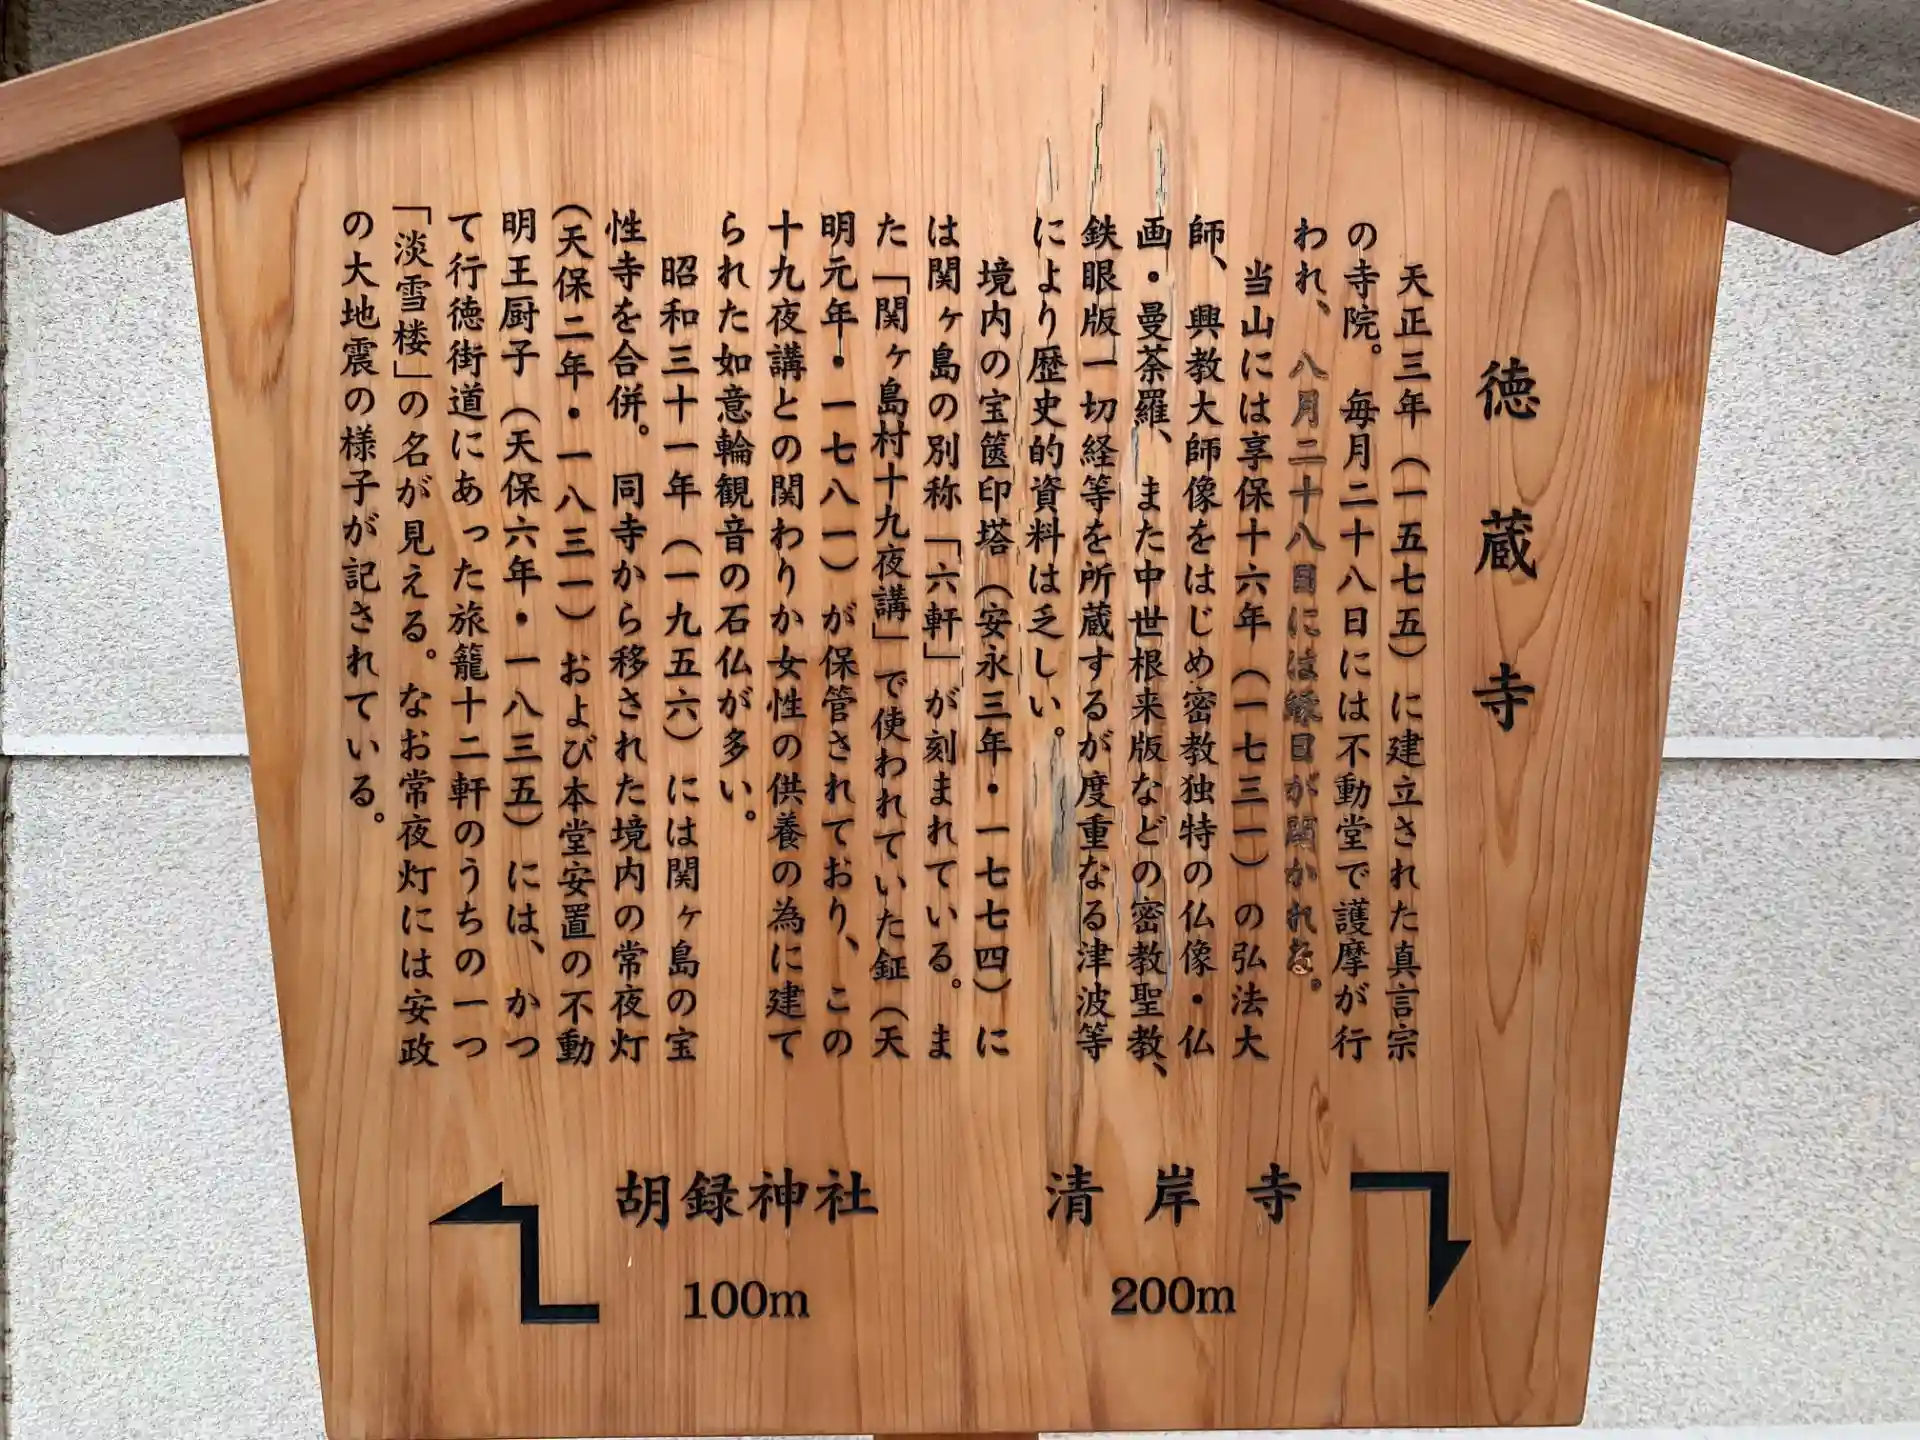 徳蔵寺
天正三年（一五七五）に建立された真言宗
の寺院。毎月二十八日には不動堂で護摩が行
われ、八月二十八日には縁日が開かれる。
当山には享保十六年（一七三一）の弘法大
師、興教大師像をはじめ密教独特の仏像・仏
画・曼荼羅、また中世根来版などの密教聖教、
鉄眼版一切経等を所蔵するが度重なる津波等
により歴史的資料は乏しい。
境内の宝篋印塔（安永三年・一七七四）に
は関ヶ島の別称「六軒」が刻まれている。ま
た「関ヶ島村十九夜講」で使われていた鉦（天
明元年・一七八一）が保管されており、この
十九夜講との関わりか女性の供養の為に建て
られた如意輪観音の石仏が多い。
昭和三十一年（一九五六）には関ヶ島の宝
性寺を合併。同寺から移された境内の常夜灯
（天保二年・一八三一）および本堂安置の不動
明王厨子（天保六年・一八三五）には、かつ
て行徳街道にあった旅籠十二軒のうちの一つ
「淡雪楼」の名が見える。なお常夜灯には安政
の大地震の様子が記されている。
胡録神社
100m
清岸寺
200m